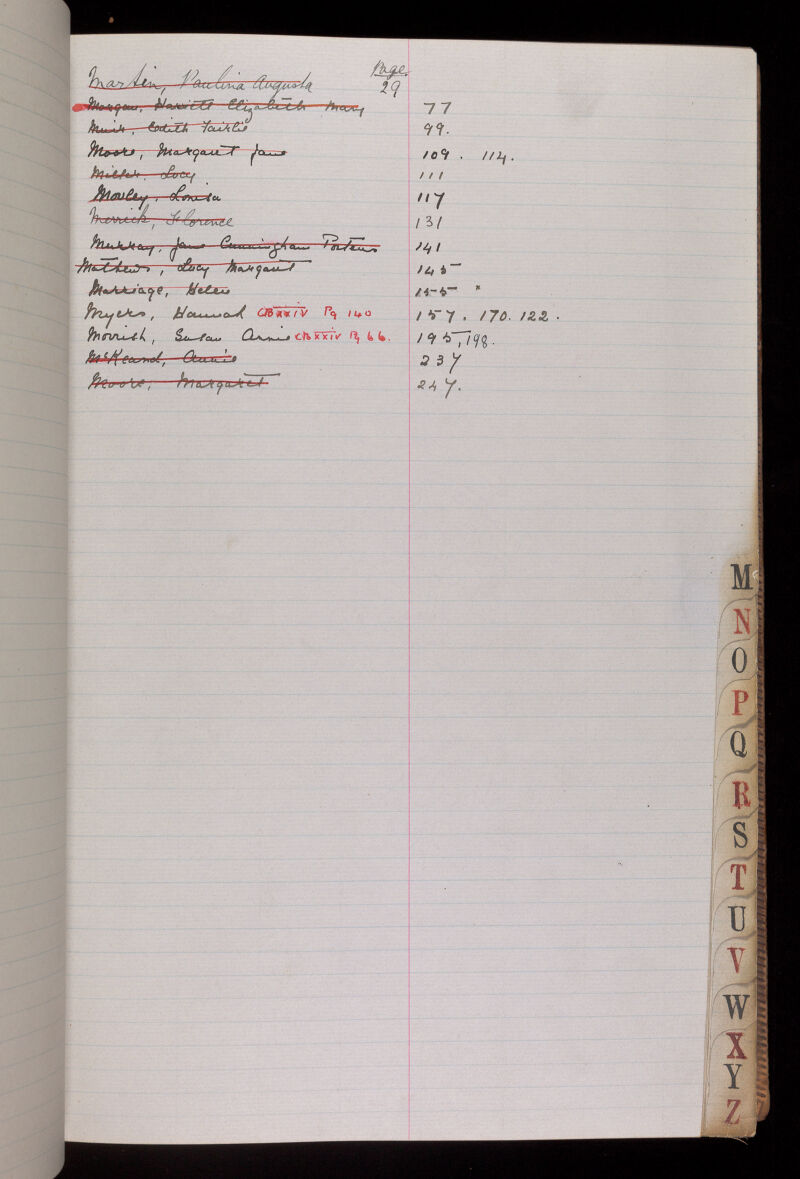 Page.
Martin, Paulina Augusta 29
Morgan, Harriett Elizabeth Mary 77
Muir, Edith Fairlie 99.
Moore, Margaret Jane 109. 114.
Miller, Lucy 111
Mowley, Louisa 117
Merrick, Florence 131
Murray, Jane Cunningham Porteus 141
Mathews, Lucy Margaret 145
Marriage, Helen 155 *
Myers, Hannah CB XXIV Pg 140 157. 170. 122.
Mourish, Susan Annie CB XXIV Pg 66. 195, 198.
McKeand, Annie 237
Moore, Margaret 247.
M
N
O
P
Q
R
S
T
U
V
W
X
Y
Z